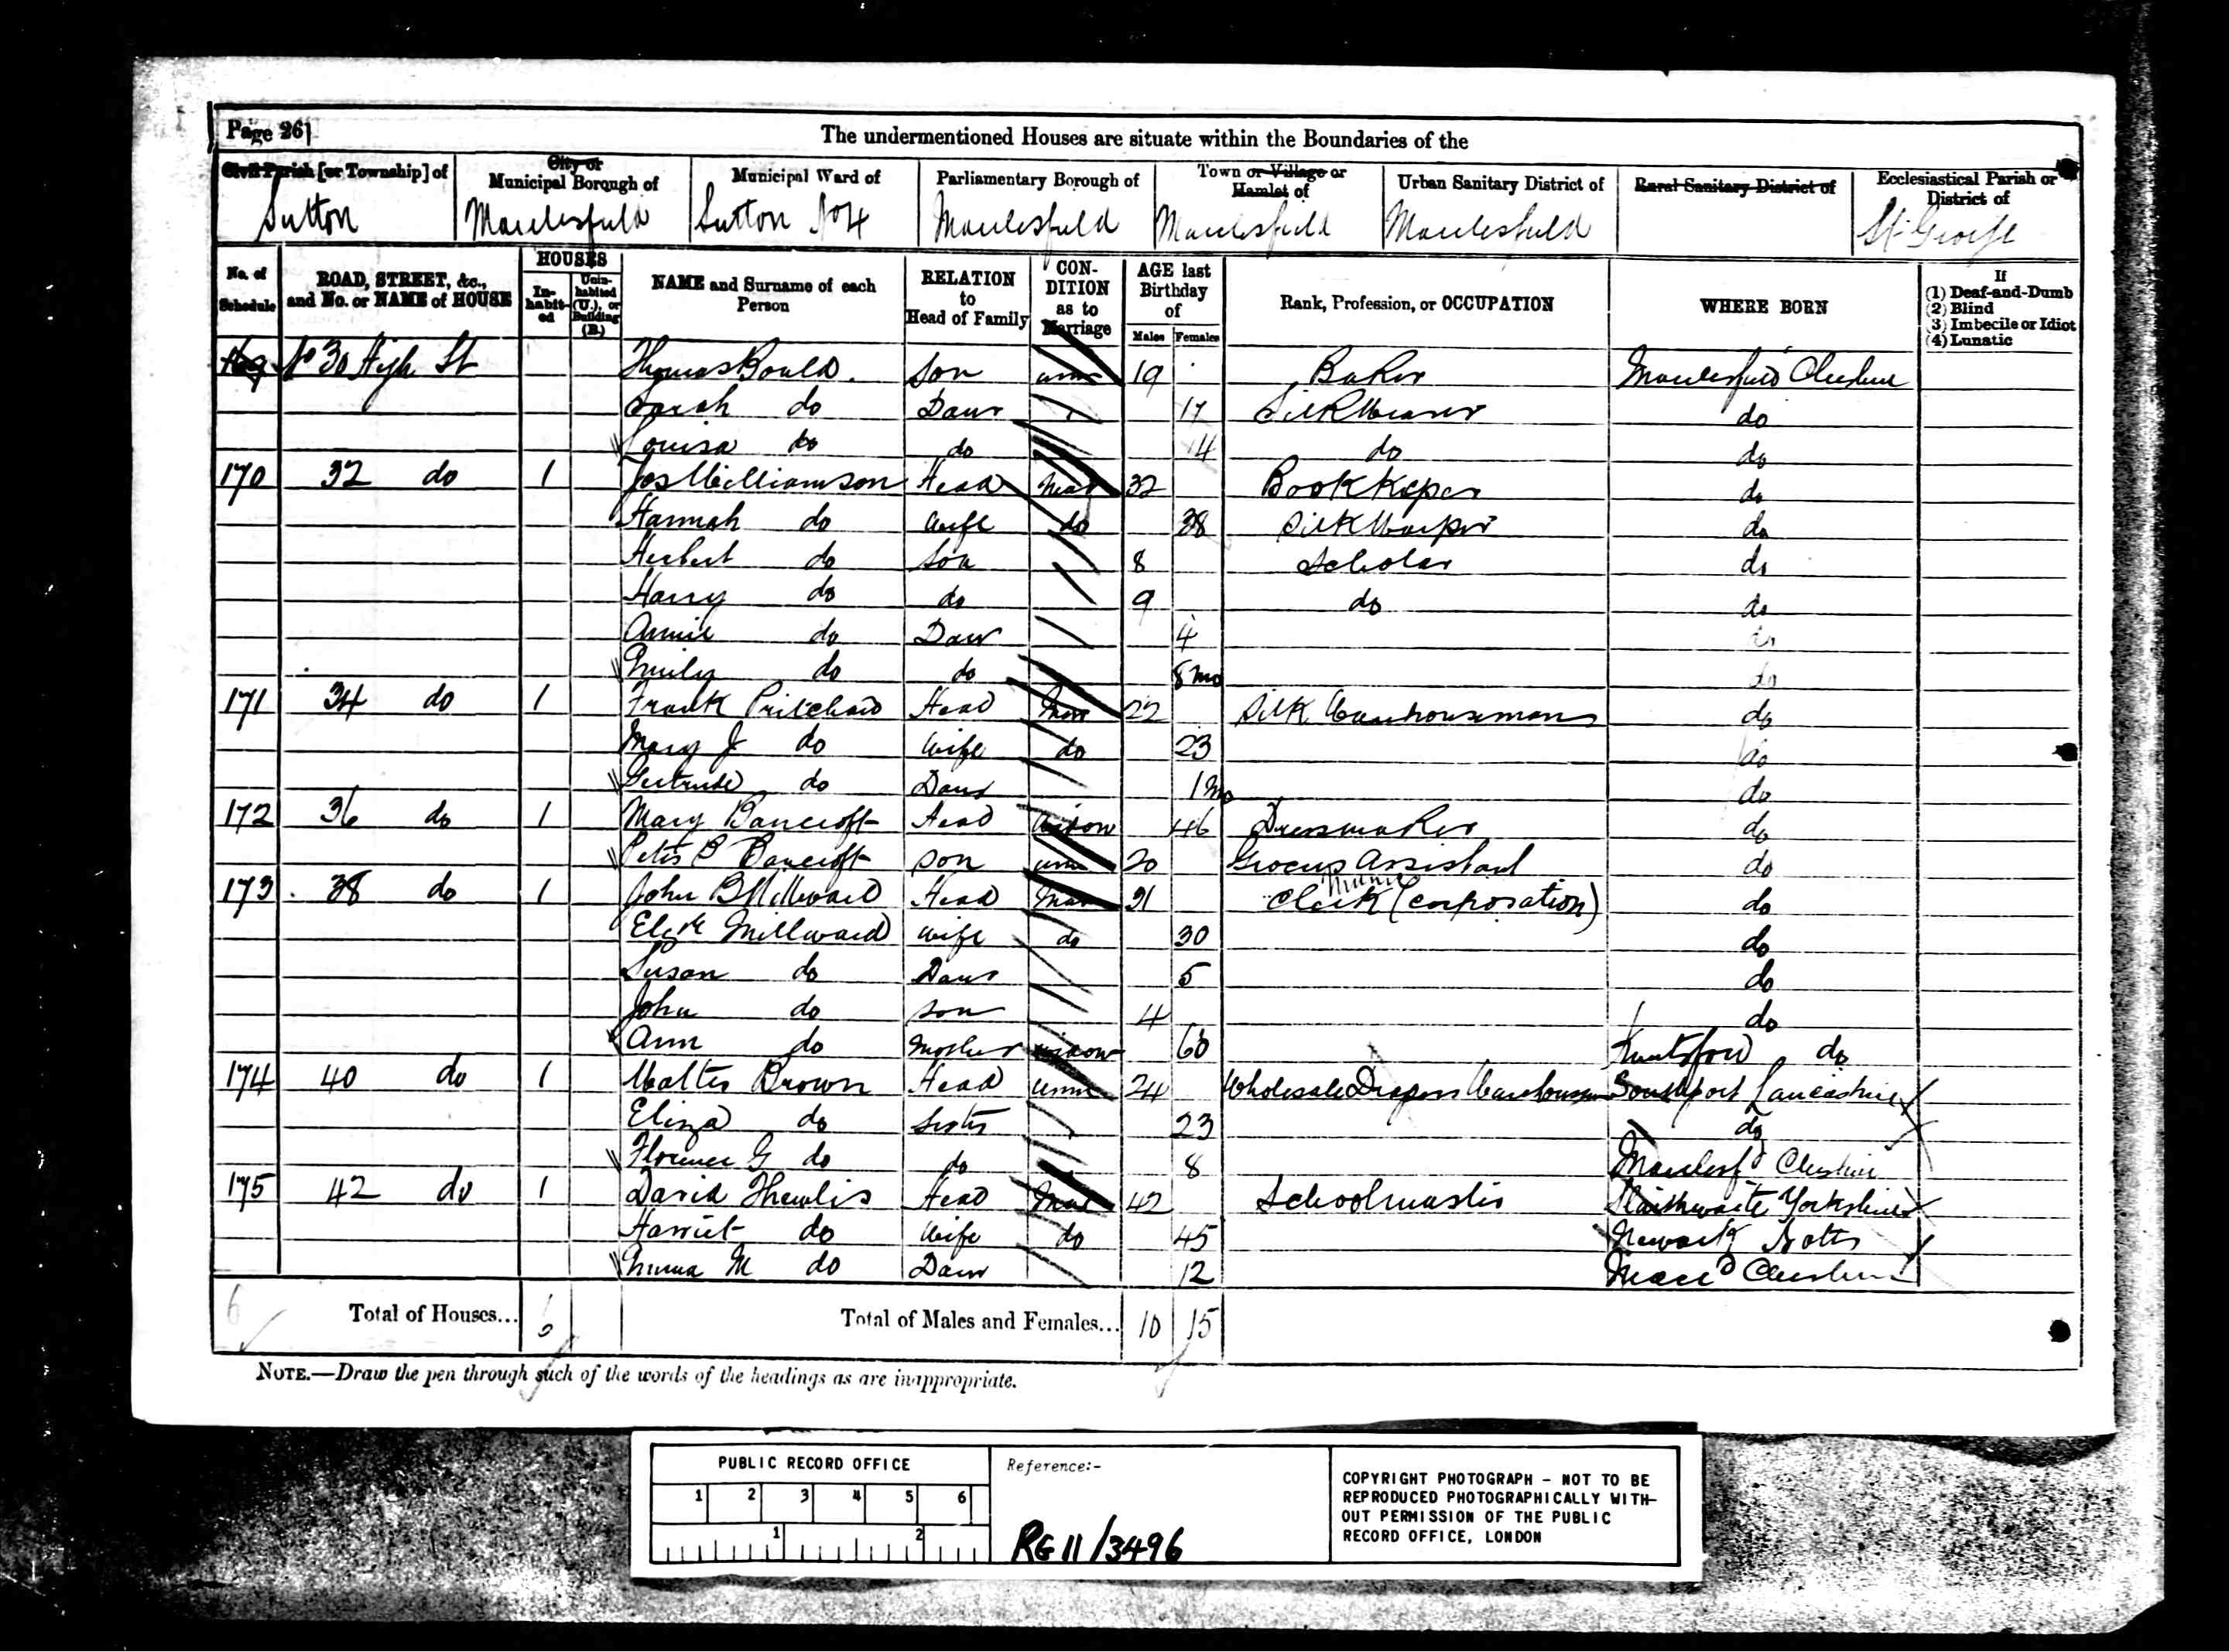 Page 26]
The undermentioned Houses are situate within the Boundaries of the
Civil Parish [or Township] of
City or Municipal Borough of
Municipal Ward of
Parliamentary Borough of
Town or Village or Hamlet of
Urban Sanitary District of
Rural Sanitary District of
Ecclesiastical Parish or District of
Sutton Macclesfield Sutton No 4 Macclesfield Macclesfield Macclesfield St George
No. of Schedule
ROAD, STREET, &c., and No. or NAME of HOUSE
HOUSES
Inhabited
Uninhabited (U.), or Building (B.)
NAME and Surname of each Person
RELATION to Head of Family
CONDITION as to Marriage
AGE last Birthday of
Males Females
Rank, Profession, or OCCUPATION
WHERE BORN
If
(1) Deaf-and-Dumb
(2) Blind
(3) Imbecile or Idiot
(4) Lunatic
No 30 High St Thomas Bould Son unm 19 Baker Macclesfield Cheshire
Sarah do Daur 17 Silk Weaver do
Louisa do do 14 do do
170 32 do 1 Jos Williamson Head Mar 32 Bookkeeper do
Hannah do Wife do 38 Silk Warper do
Herbert do Son 8 Scholar do
Harry do do 9 do do
Annie do Daur 4 do
Emily do do 8 mo do
171 34 do 1 Frank Pritchard Head Mar 22 Silk Warehouseman do
Mary J do Wife do 23 do
Gertrude do Daur 1 Mo do
172 36 do 1 Mary Bancroft Head Widow 46 Dressmaker do
Peter B Bancroft Son unm 20 Grocers Assistant do
173 38 do 1 John B Millward Head Mar 31 Clerk (Corporation) do
Elizth Millward Wife do 30 do
Susan do Daur 5 do
John do Son 4 do
Ann do Mother Widow 60 Knutsford do
174 40 do 1 Walter Brown Head unm 24 Wholesale Drapers Warehouseman Southport Lancashire
Eliza do Sister 23 do
Florence G do do 8 Macclesfd Cheshire
175 42 do 1 David Thewlis Head Mar 42 Schoolmaster Slaithwaite Yorkshire
Harriet do Wife do 45 Newark Notts
Emma M do Daur 12 Maccd Cheshire
6 Total of Houses... 6 Total of Males and Females... 10 15
NOTE.—Draw the pen through such of the words of the headings as are inappropriate.
PUBLIC RECORD OFFICE
1 2 3 4 5 6
1 2
Reference:-
RG 11/3496
COPYRIGHT PHOTOGRAPH - NOT TO BE
REPRODUCED PHOTOGRAPHICALLY WITH-
OUT PERMISSION OF THE PUBLIC
RECORD OFFICE, LONDON